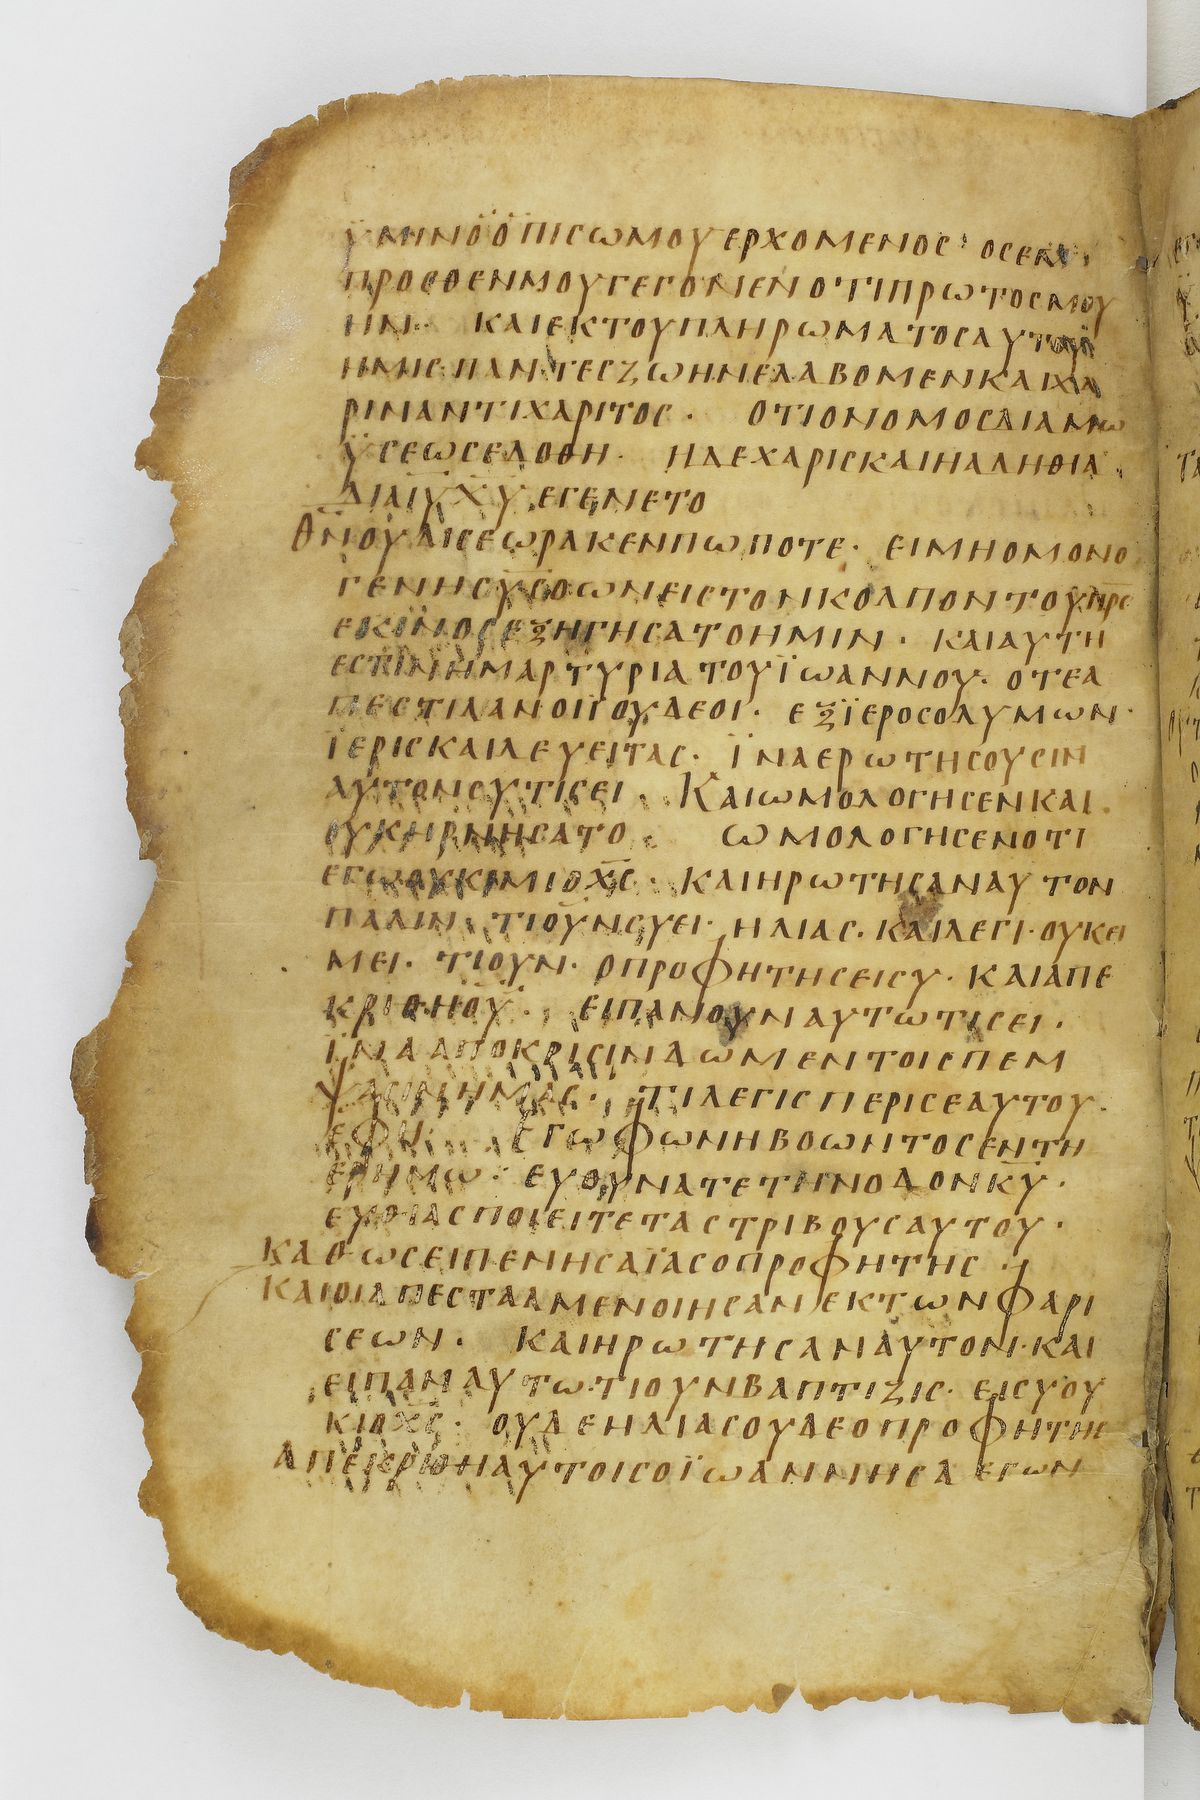 ϋμινὁ ὁπισωμουερχομενος· οσεμ
προσθενμουγεγονενοτιπρωτοσμου
ην· καιεκτουπληρωματοσαυτου
ημισπαντεσζωηνελαβομενκαιχα
ριναντιχαριτος· οτιονομοσδιαμω
ϋσεωσεδοθη· ηδεχαρισκαιηαληθια
διαι̅υ̅χ̅υ̅εγενετο
θ̅ν̅ουδισεωρακενπωποτε· ειμηομονο
γενησυ̅σ̅οωνειστονκολποντουπ̅ρ̅ς̅
εκινοσεξηγησατοημιν· καιαυτη
εστινημαρτυριατουϊωαννου· οτεα
πεστιλανοιϊουδεοι· εξϊεροσολυμων·
ϊερισκαιλευειτας· ϊναερωτησουσιν
αυτονσυτισει Καιωμολογησενκαι
ουκηρνησατο ωμολογησενοτι
εγωουκιμιοχ̅ς̅· καιηρωτησαναυτον
παλιν τιουνσυει· ηλιας· καιλεγι· ουκει
μει· τιουν· οπροφητησεισυ· καιαπε
κριθηου· ειπανουναυτωτισει·
ϊνααποκρισινδωμεντοισπεμ
ψασινημας· τιλεγισπερισεαυτου·
εφη· εγωφωνηβοωντοσεντη
ερημω· ευθυνατετηνοδονκ̅υ̅·
ευθιασποιειτεταστριβουσαυτου·
καθωσειπενησαϊασοπροφητης·
Καιοιαπεσταλμενοιησανεκτωνφαρι
σεων· καιηρωτησαναυτον· και
ειπαναυτω· τιουνβαπτιζις· εισυου
κιοχ̅ς̅· ουδεηλιασουδεοπροφητης
Απεκριθηαυτοισοϊωαννησλεγων